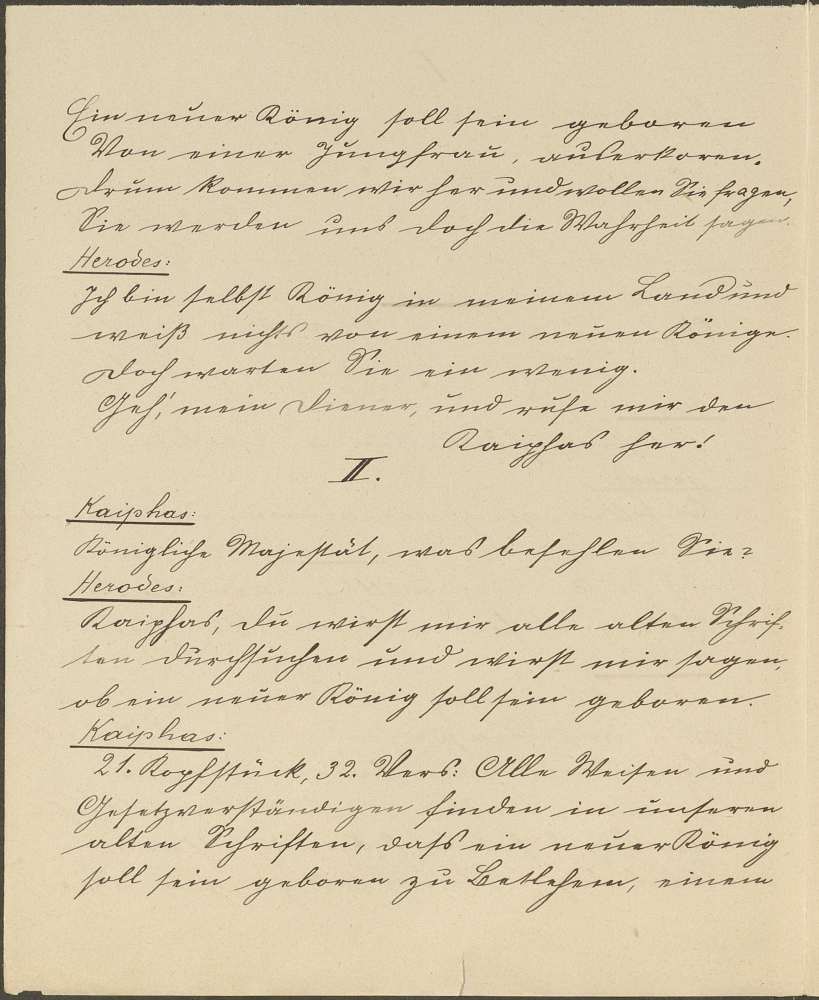 Ein neuer König soll sein geboren
Von einer Jungfrau, auserkoren.
Drum kommen wir her und wollen Sie fragen,
Sie werden uns doch die Wahrheit sagen.
Herodes:
Ich bin selbst König in meinem Land und
weiß nichts von einem neuen Könige.
Doch warten Sie ein wenig.
Geh', mein Diener, und rufe mir den
Kaiphas her!
II.
Kaiphas:
Königliche Majestät, was befehlen Sie?
Herodes:
Kaiphas, du wirst mir alle alten Schrif-
ten durchsuchen und wirst mir sagen,
ob ein neuer König soll sein geboren.
Kaiphas:
21. Kopfstück, 32. Vers: Alle Weisen und
Gesetzverständigen finden in unseren
alten Schriften, dass ein neuer König
soll sein geboren zu Betlehem, einem